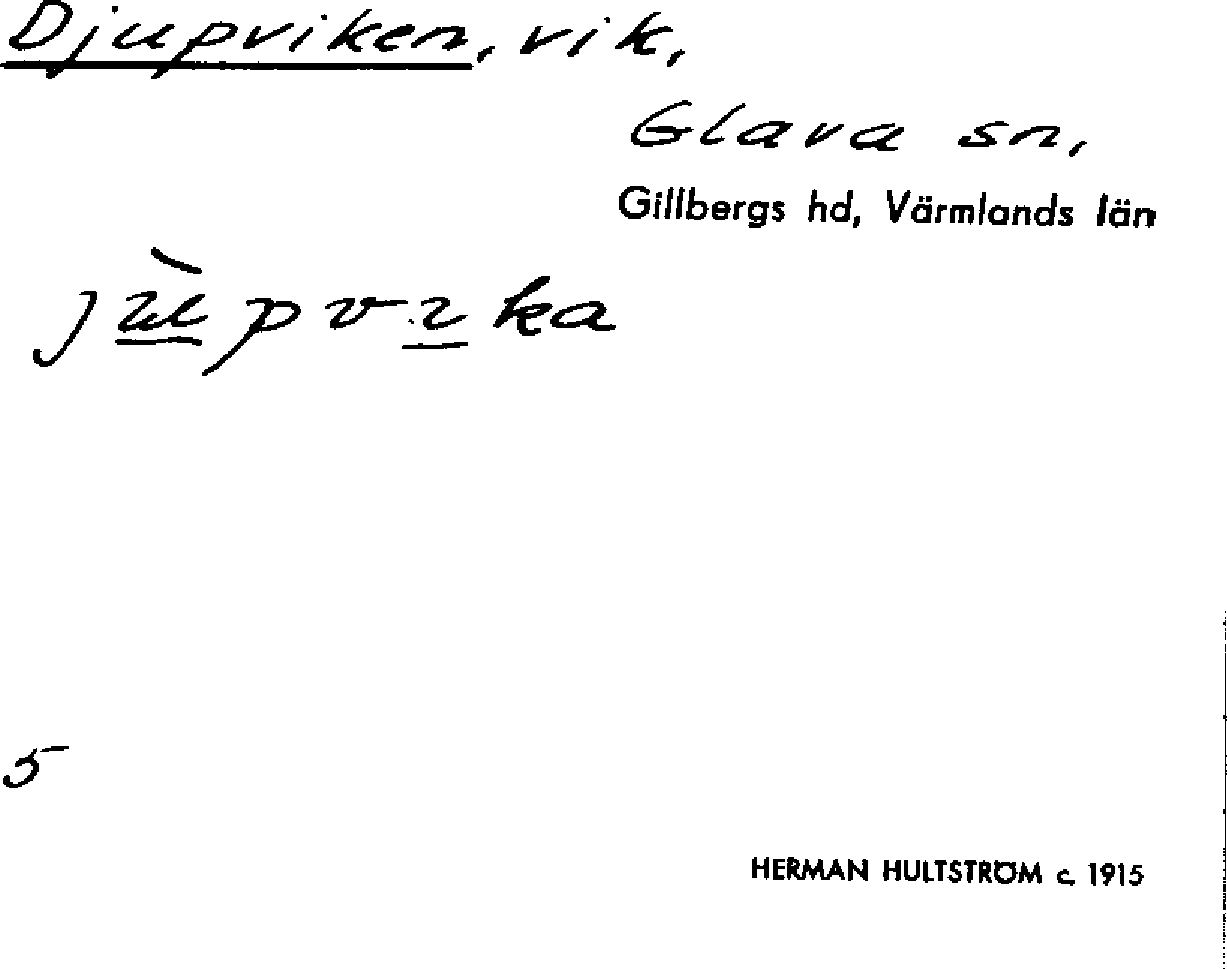 Djupviken, vik,
Glava sn,
Gillbergs hd, Värmlands län
jùpvika
5
HERMAN HULTSTRÖM c. 1915